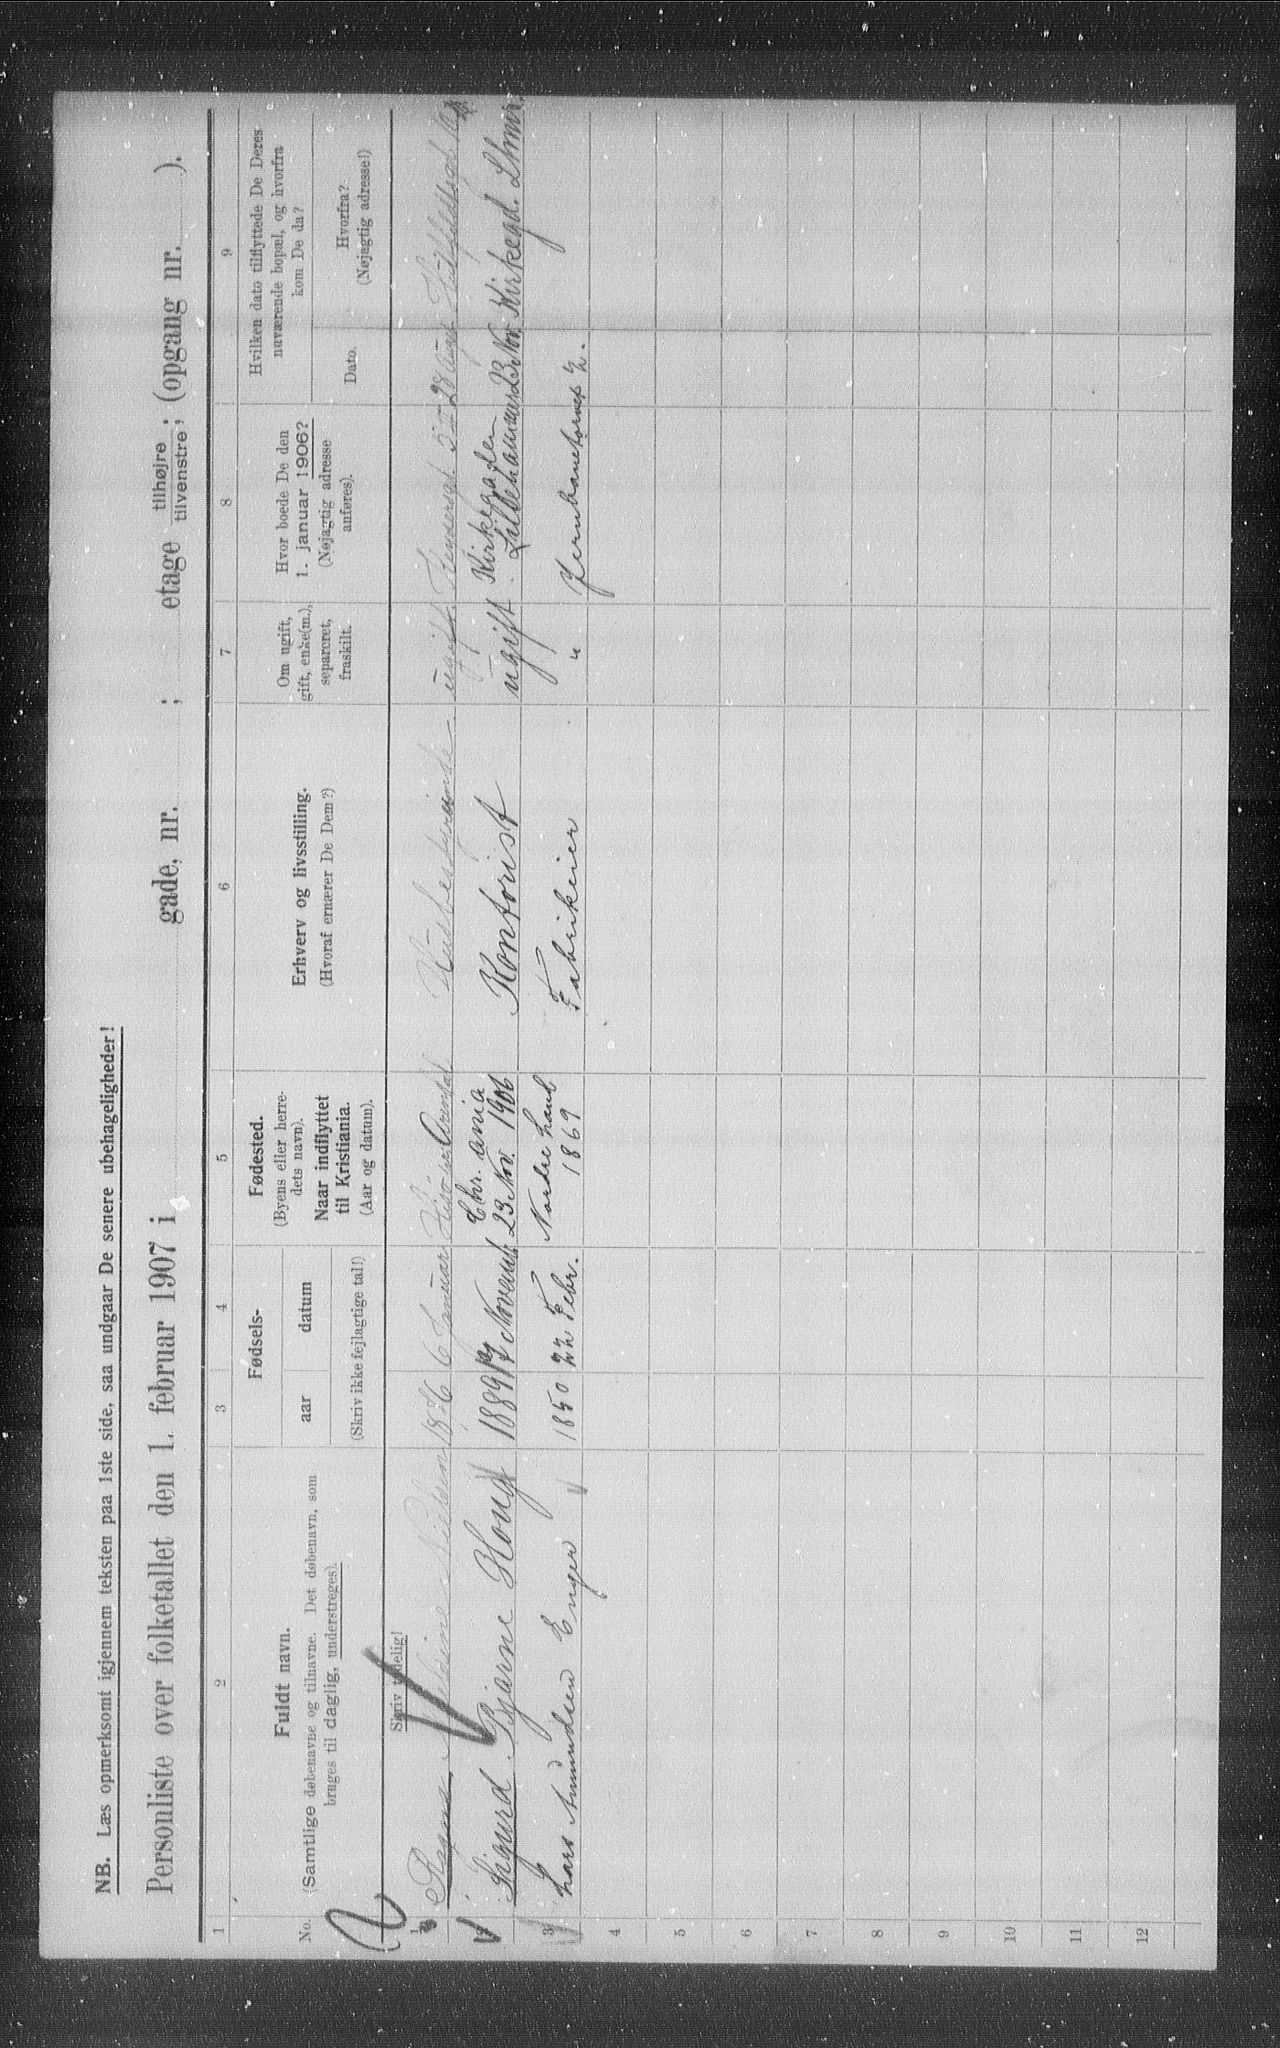 NB. Læs opmerksomt igjennem teksten paa 1ste side, saa undgaar De senere ubehageligheder!
Personliste over folketallet den 1. februar 1907 i gade, nr. ; etage tilhøjre tilvenstre; (opgang nr. ).
1 2 3 4 5 6 7 8 9
No.
Fuldt navn.
(Samtlige døbenavne og tilnavne. Det døbenavn, som
bruges til daglig, understreges).
Skriv tydelig!
Fødsels-
aar datum
(Skriv ikke fejlagtige tal!)
Fødested.
(Byens eller herre-
dets navn).
Naar indflyttet
til Kristiania.
(Aar og datum).
Erhverv og livsstilling.
(Hvoraf ernærer De Dem?)
Om ugift,
gift, enke(m.),
separeret,
fraskilt.
Hvor boede De den
1. januar 1906?
(Nøjagtig adresse
anføres).
Hvilken dato tilflyttede De Deres
nuværende bopæl, og hvorfra
kom De da?
Dato.
Hvorfra?
(Nøjagtig adresse!)
1 Nielsen 1876 6 Januar Arendal Husbestyrerinde ugift 28 Aug
2 Sigurd Bjarne Houg 1889 17 Novemb. Chr.ania 23 Nov. 1906 Kontorist ugift. Kirkegaden Lillehammer 23 Nov. Kirkegd. Lhmr.
3 Lars Amundsen Enger 1850 22 Febr. Nordre Land 1869 Fabrikeier " Jernbanetorvet 2.
4
5
6
7
8
9
10
11
12